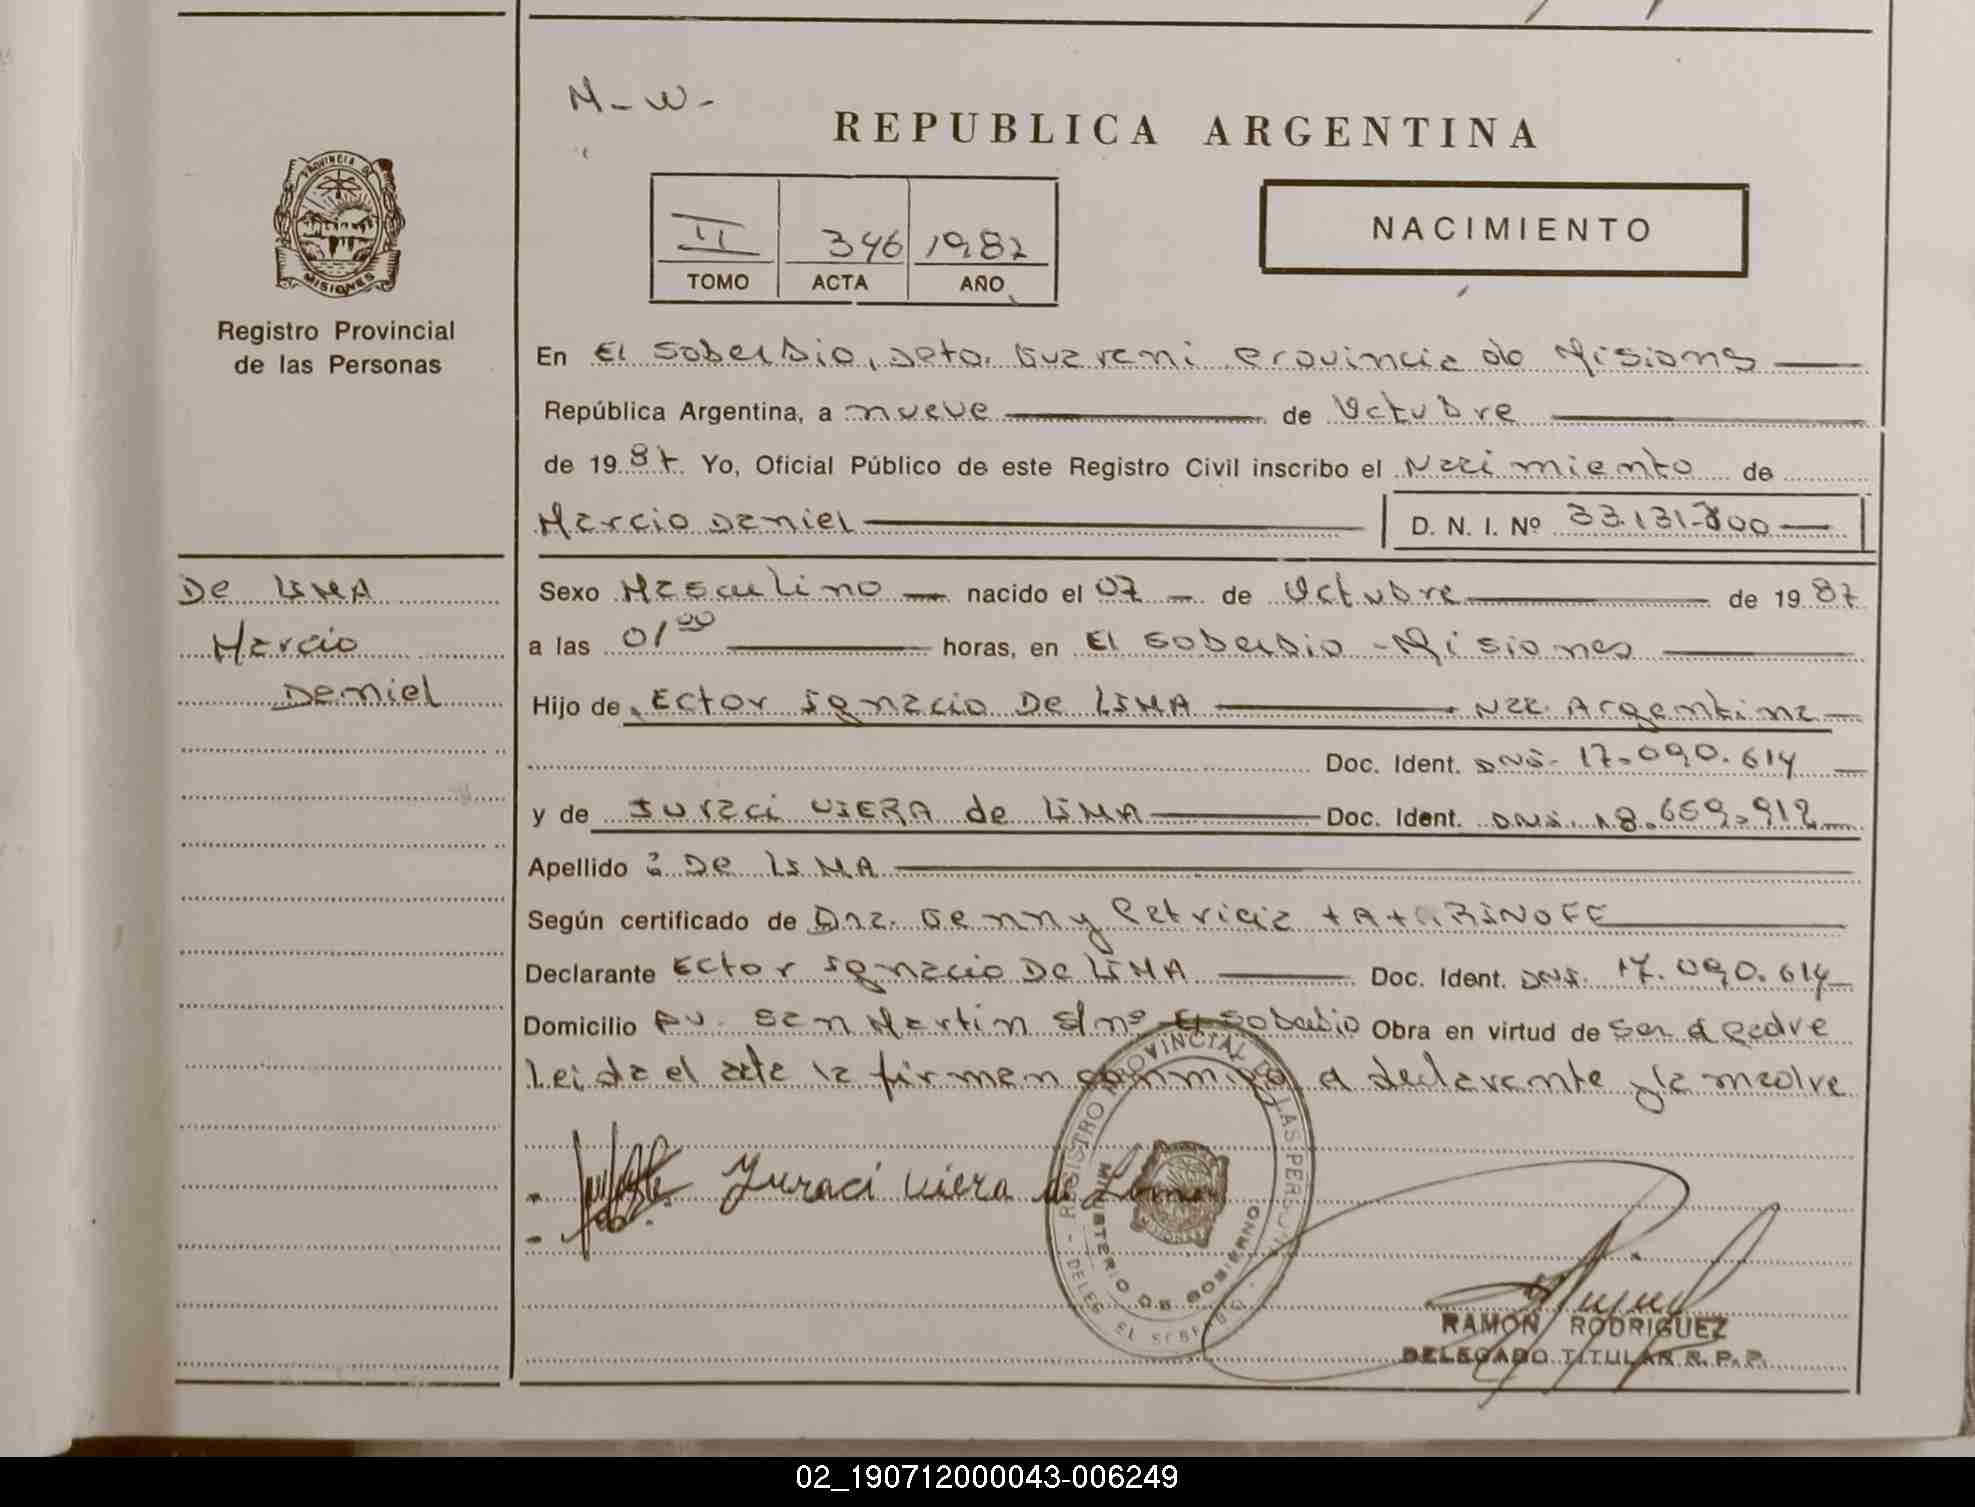 M-W-
REPUBLICA ARGENTINA
NACIMIENTO
II 346 1987
TOMO ACTA AÑO
PROVINCIA DE MISIONES
Registro Provincial
de las Personas
En El Soberbio, Dpto. Guarani Provincia de Misiones
República Argentina, a nueve de Octubre
de 1987 Yo, Oficial Público de este Registro Civil inscribo el Nacimiento de
Marcio Daniel D. N. I. Nº 33.131.800
DE LIMA
Marcio
Daniel
Sexo Masculino nacido el 07 de Octubre de 1987
a las 01 00 horas, en El Soberbio - Misiones
Hijo de Ector Ignacio De LIMA Nac. Argentina
Doc. Ident. DNI. 17.090.614
y de Iuraci VIERA de LIMA Doc. Ident. DNI. 18.659.912
Apellido : De LIMA
Según certificado de Dra. Genny Patricia
Declarante Ector Ignacio De LIMA Doc. Ident. DNI. 17.090.614
Domicilio Av. San Martin s/nº El Soberbio Obra en virtud de Ser el padre
Leida el acta la firman conmigo el declarante y la madre
Yuraci Viera de Lima
REGISTRO PROVINCIAL DE LAS PERSONAS
MINISTERIO DE GOBIERNO
- DELEG. EL SOBERBIO -
RAMON RODRIGUEZ
DELEGADO TITULAR R. P. P.
02_190712000043-006249